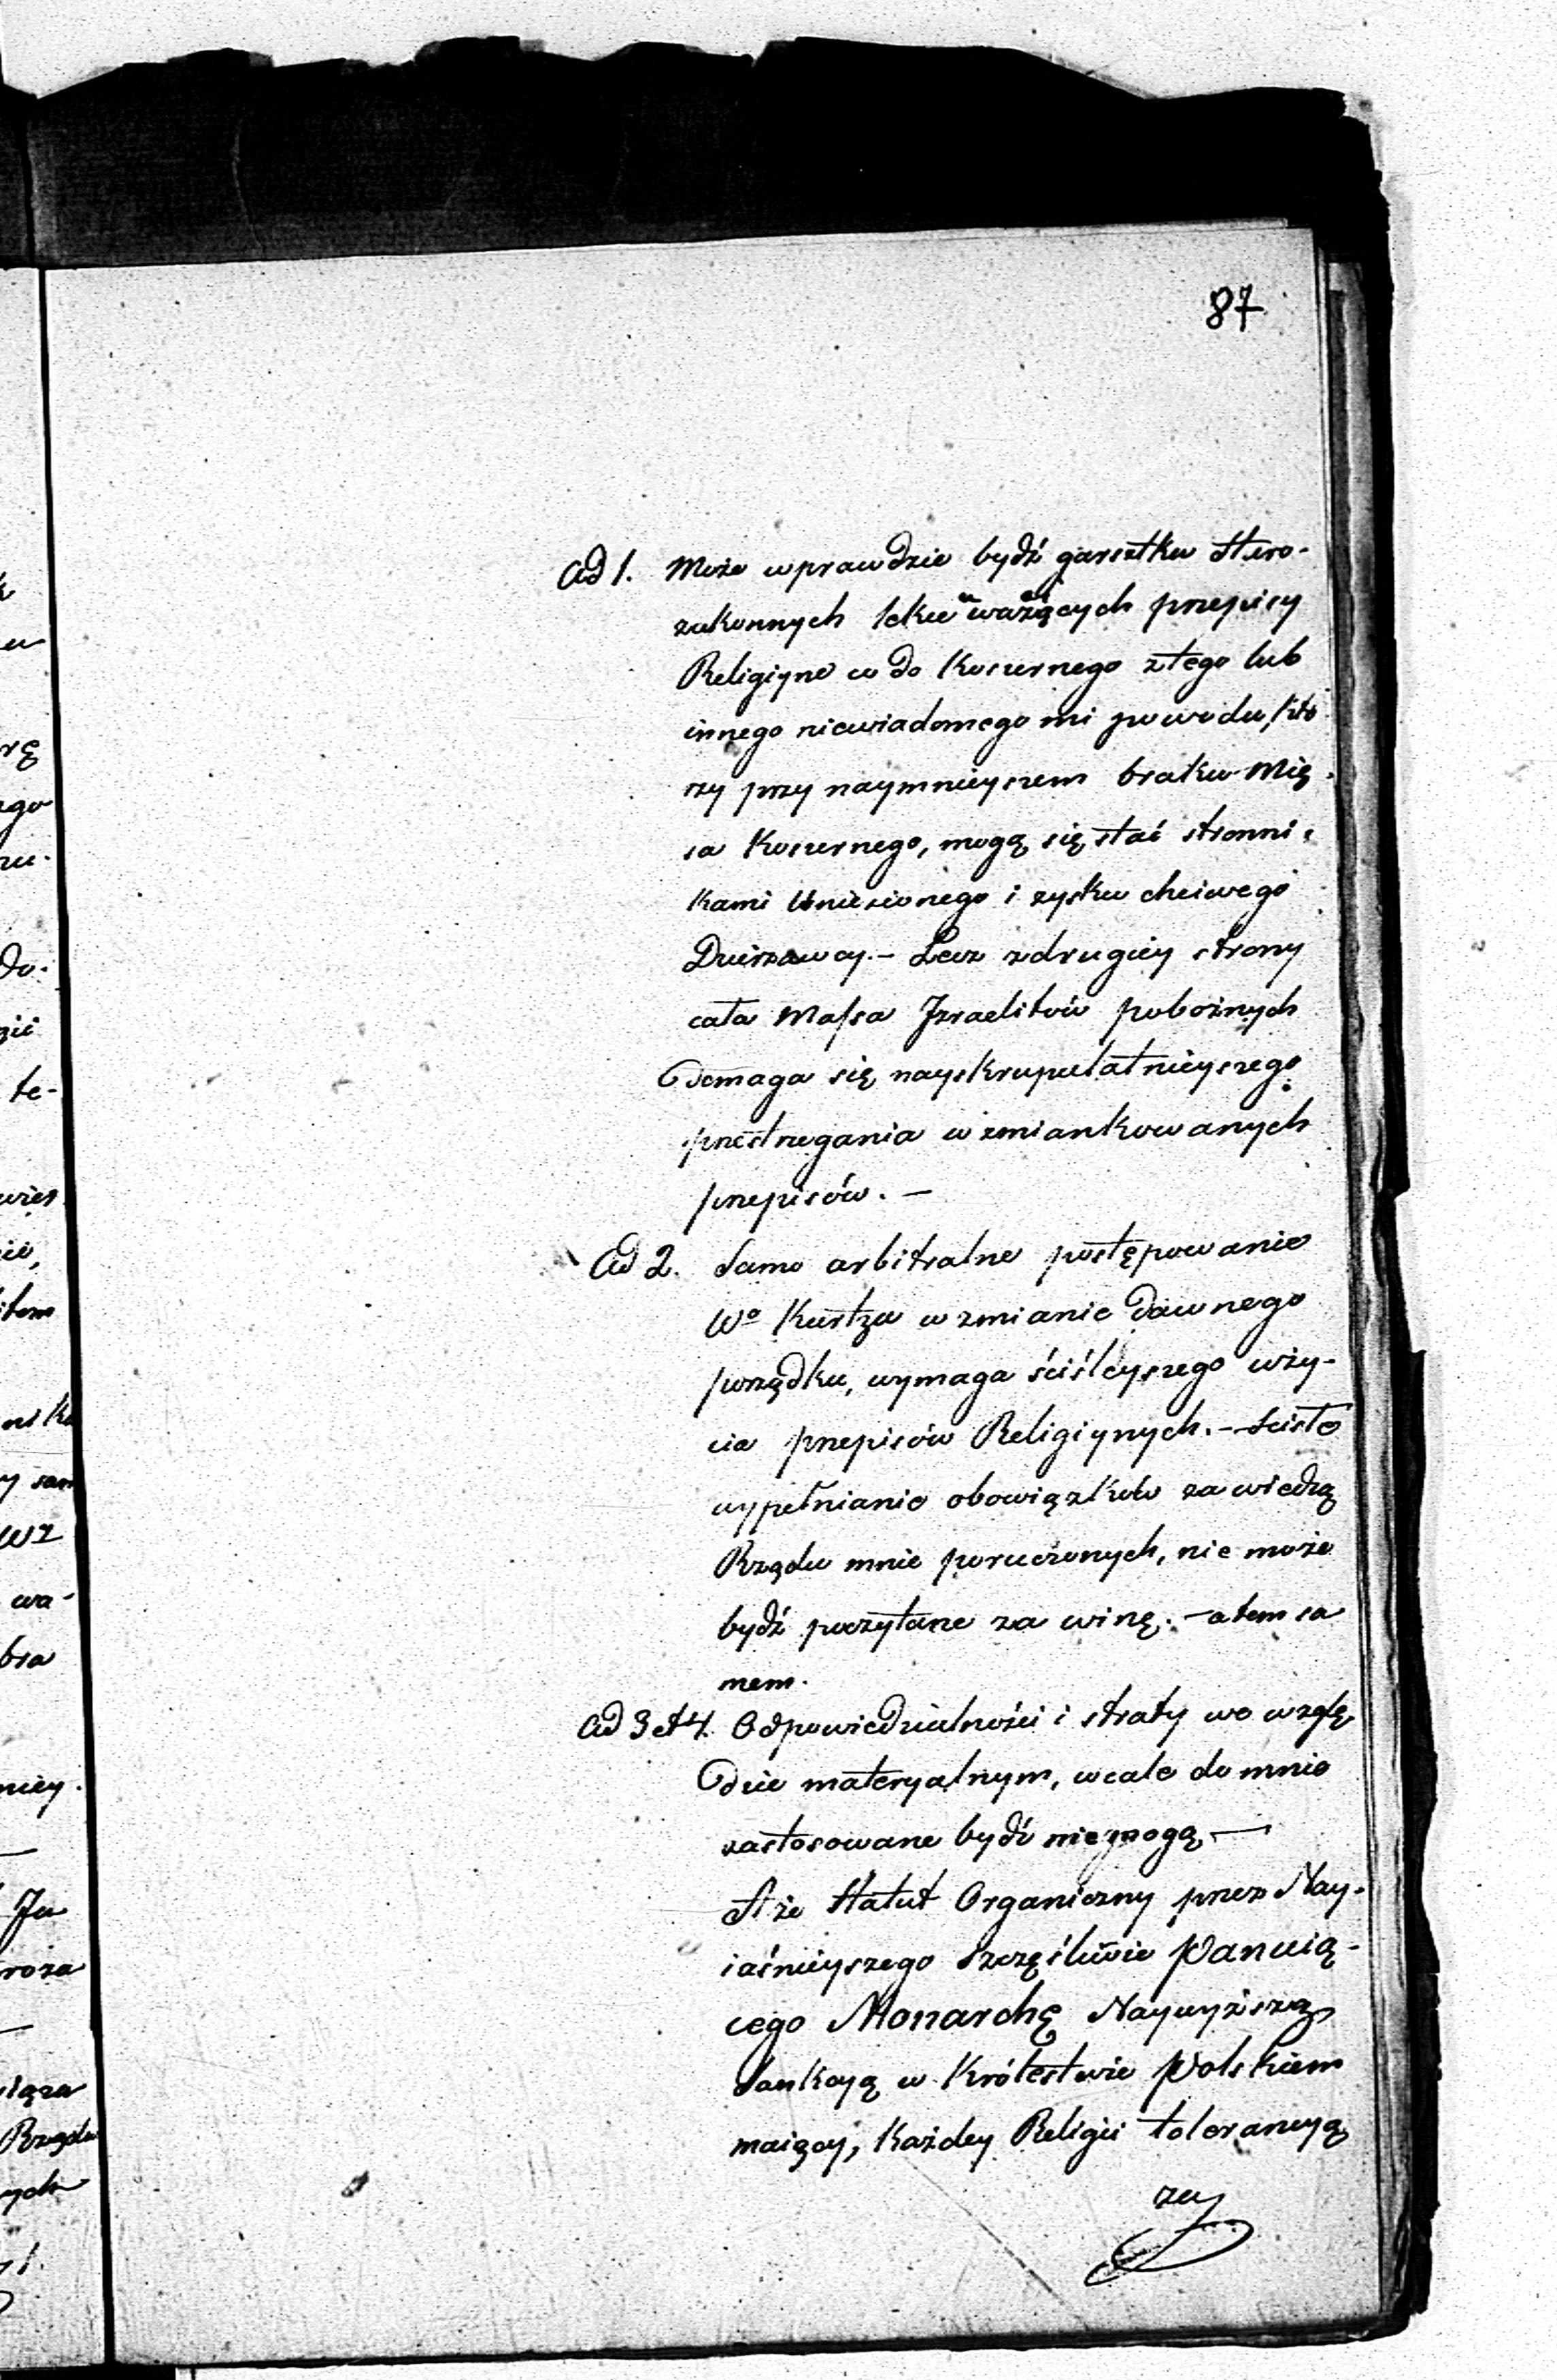 87
Ad 1. Może wprawdzie bydź garsztka Staro-
zakonnych lekce ważących przepisy
Religiyne co do Koszernego ztego lub
innego niewiadomego mi powodu, któ
rzy przy naymnieyszem braku Mię-
sa Koszernego, mogą się stać stronni-
kami Uniesionego i zysku chciwego
Dzierzawcy. – Lecz z drugiey strony
cała Massa Izraelitów pobożnych
domaga się nayskrupulatnieyszego
przestrzegania wzmiankowanych
przepisów. –
Ad 2. Samo arbitralne postępowanie
Wo Kurtza w zmianie dawnego
porządku, wymaga ściśleyszego uży-
cia przepisów Religiynych. – Scisłe
wypełnianie obowiązków za wiedzą
Rządu mnie poruczonych, nie może
bydź poczytane za winę. – a tem sa
mem.
Ad 3 et 4. Odpowiedzialności i straty we wzglę
dzie materyalnym, wcale do mnie
zastosowane bydź nie mogą. –
A że Statut Organiczny przez Nay-
iaśnieyszego Szczęśliwie Panuią-
cego Monarchę Naywyższą
Sankcyą w Królestwie Polskiem
maiący, Każdey Religii tolerancyą
za
nik
y sam
wz
wa-
bra
niey.
Ja
Rządu
ych
te-
do-
ego